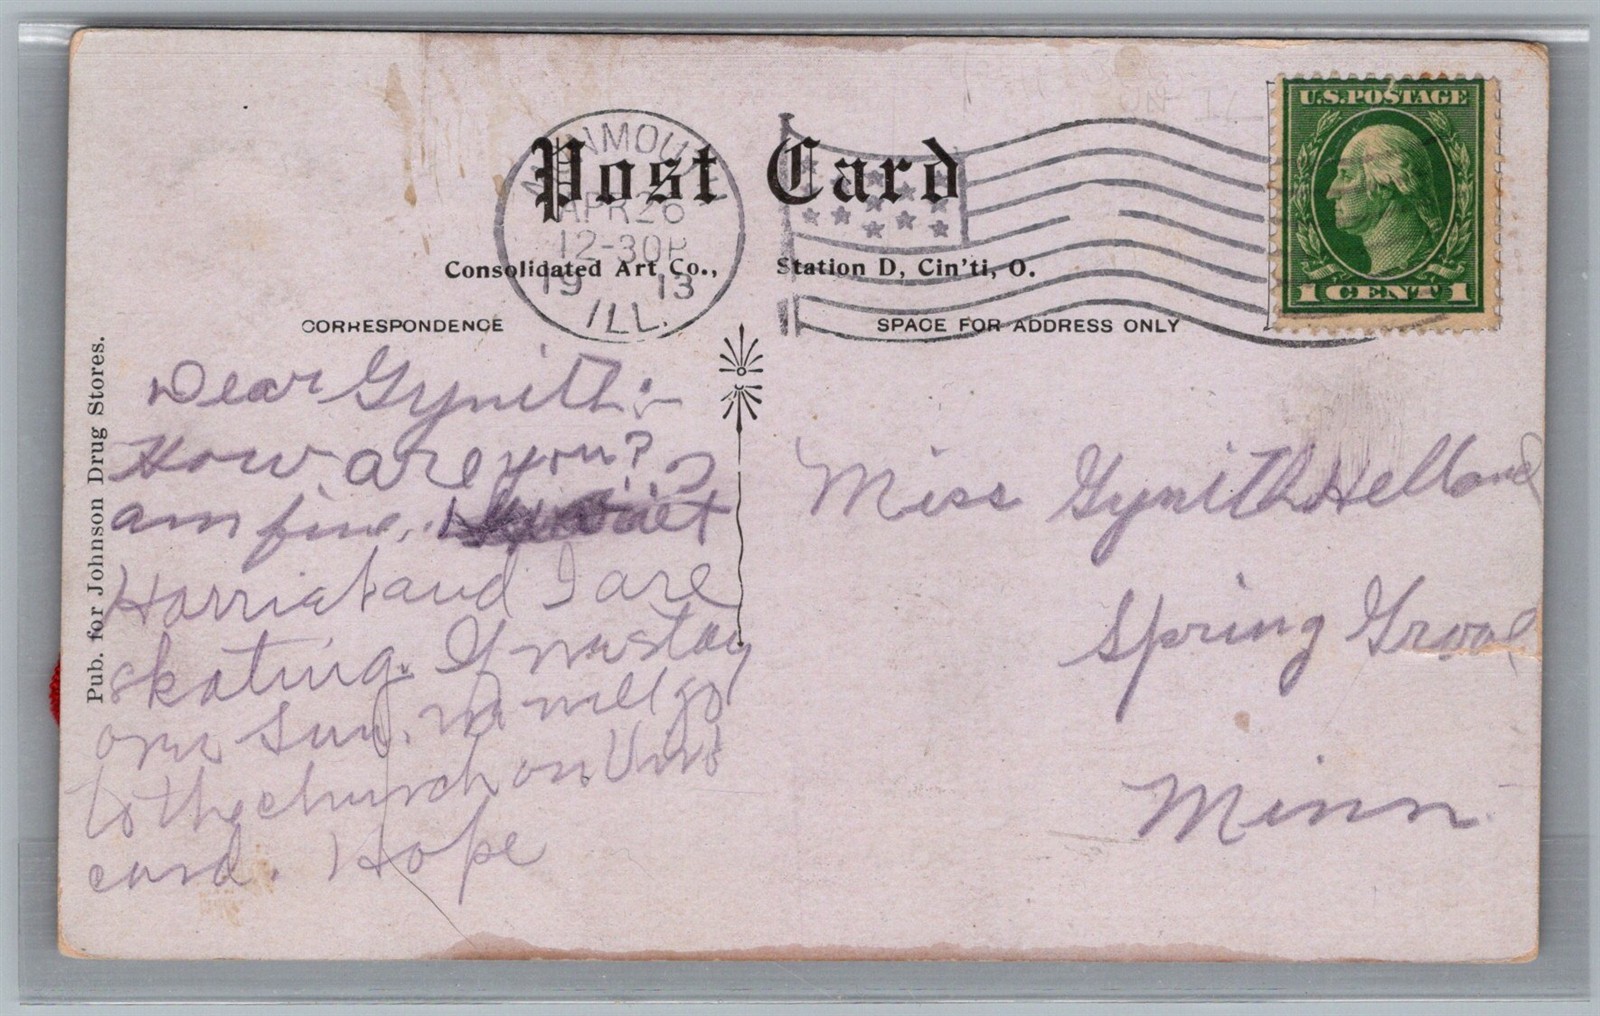 Post Card
Consolidated Art Co., Station D, Cin'ti, O.
MONMOUTH
APR 26
12-30P
19 13
ILL.
U.S. POSTAGE
1 CENT 1
CORRESPONDENCE
SPACE FOR ADDRESS ONLY
Pub. for Johnson Drug Stores.
Dear Gynith:-
How are you? I
am fine.
Harriet and I are
skating. If we stay
one Sun. we will go
to the church on this
card. Hope
Miss Gynith Helland
Spring Grove
Minn